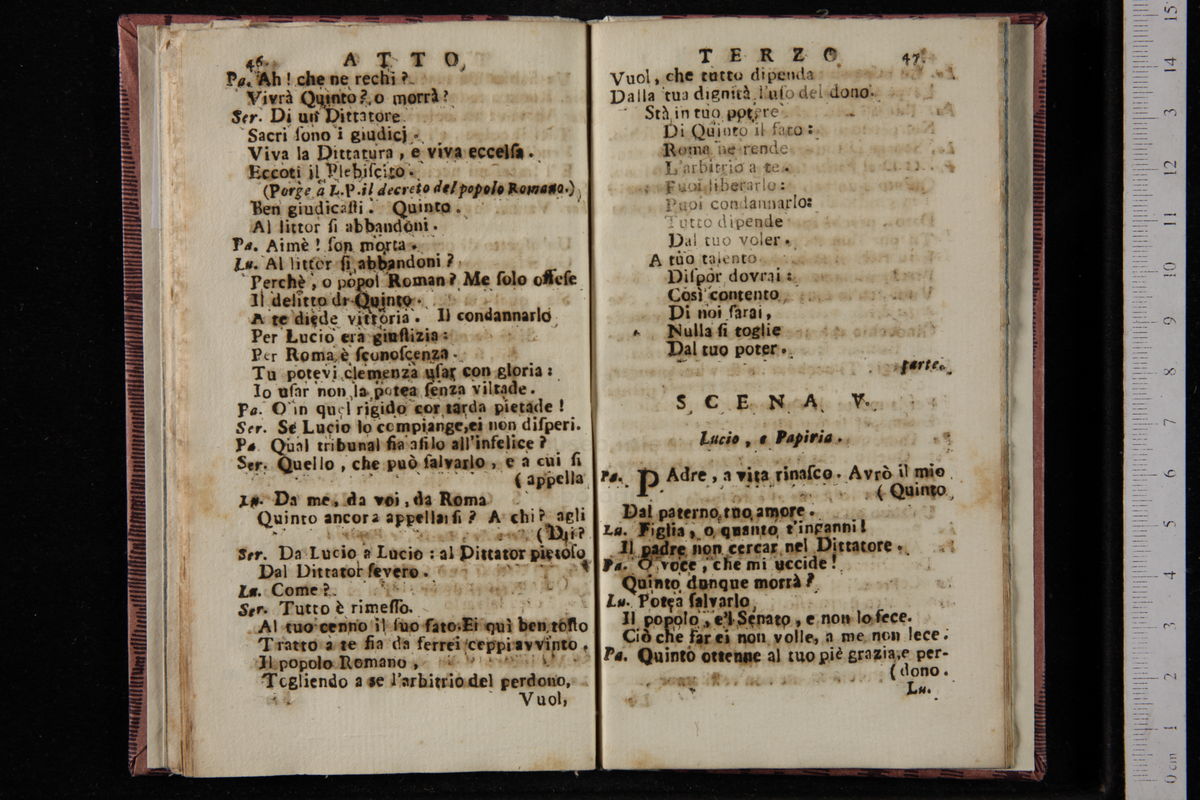 46 ATTO
Pa. Ah! che ne rechi?
Vivrà Quinto? o morrà?
Ser. Di un Dittatore
Sacri ſono i giudicj.
Viva la Dittatura, e viva eccelſa.
Eccoti il Plebiſcito.
(Porge a L.P. il decreto del popolo Romano.)
Ben giudicaſti. Quinto.
Al littor ſi abbandoni.
Pa. Aimè! ſon morta.
Lu. Al littor ſi abbandoni?
Perchè, o popol Roman? Me ſolo offeſe
Il delitto di Quinto.
A te diede vittoria. Il condannarlo
Per Lucio era giuſtizia:
Per Roma è ſconoſcenza.
Tu potevi clemenza uſar con gloria:
Io uſar non la potea ſenza viltade.
Pa. O in quel rigido cor tarda pietade!
Ser. Se Lucio lo compiange, ei non diſperi.
Pa Qual tribunal fia aſilo all'infelice?
Ser. Quello, che può ſalvarlo, e a cui ſi
(appella
Lu. Da me, da voi, da Roma
Quinto ancora appellaſi? A chi? agli
(Dii?
Ser. Da Lucio a Lucio: al Dittator pietoſo
Dal Dittator ſevero.
Lu. Come?
Ser. Tutto è rimeſſo.
Al tuo cenno il ſuo fato. Ei quì ben toſto
Tratto a te fia da ferrei ceppi avvinto.
Il popolo Romano,
Togliendo a se l'arbitrio del perdono,
Vuol,
TERZO 47.
Vuol, che tutto dipenda
Dalla tua dignità l'uſo del dono.
Stà in tuo potere
Di Quinto il fato:
Roma ne rende
L'arbitrio a te.
Puoi liberarlo:
Puoi condannarlo:
Tutto dipende
Dal tuo voler.
A tuo talento
Diſpor dovrai:
Così contento
Di noi ſarai,
Nulla ſi toglie
Dal tuo poter.
parte.
SCENA V.
Lucio, e Papiria.
Pa. PAdre, a vita rinaſco. Avrò il mio
(Quinto
Dal paterno tuo amore.
Lu. Figlia, o quanto t'inganni!
Il padre non cercar nel Dittatore.
Pa. O voce, che mi uccide!
Quinto dunque morrà?
Lu. Potea ſalvarlo
Il popolo, e'l Senato, e non lo fece.
Ciò che far ei non volle, a me non lece.
Pa. Quinto ottenne al tuo piè grazia, e per-
(dono.
Lu.
0 cm 1 2 3 4 5 6 7 8 9 10 11 12 3 14 15